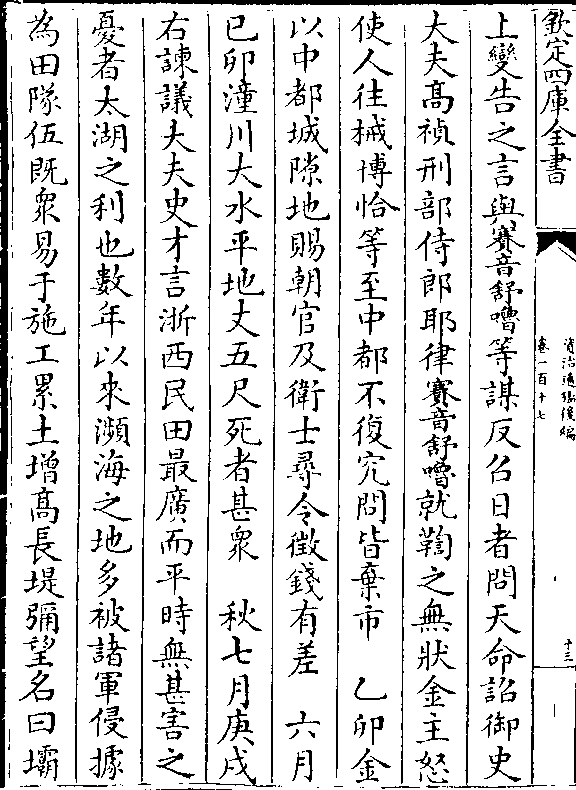 欽定四庫全書
資治通鑑後編
卷一百十七
十三
上變告之言與賽音舒嚕等謀反召日者問天命詔御史
大夫高禎刑部侍郎耶律賽音舒嚕就鞫之無狀金主怒
使人往械博恰等至中都不復究問皆棄市　乙卯金
以中都城隙地賜朝官及衛士尋令徵錢有差　六月
己卯潼川大水平地丈五尺死者甚衆　秋七月庚戌
右諫議大夫史才言浙西民田最廣而平時無甚害之
憂者太湖之利也數年以來瀕海之地多被諸軍侵據
為田隊伍既衆易于施工累土增高長堤彌望名曰壩